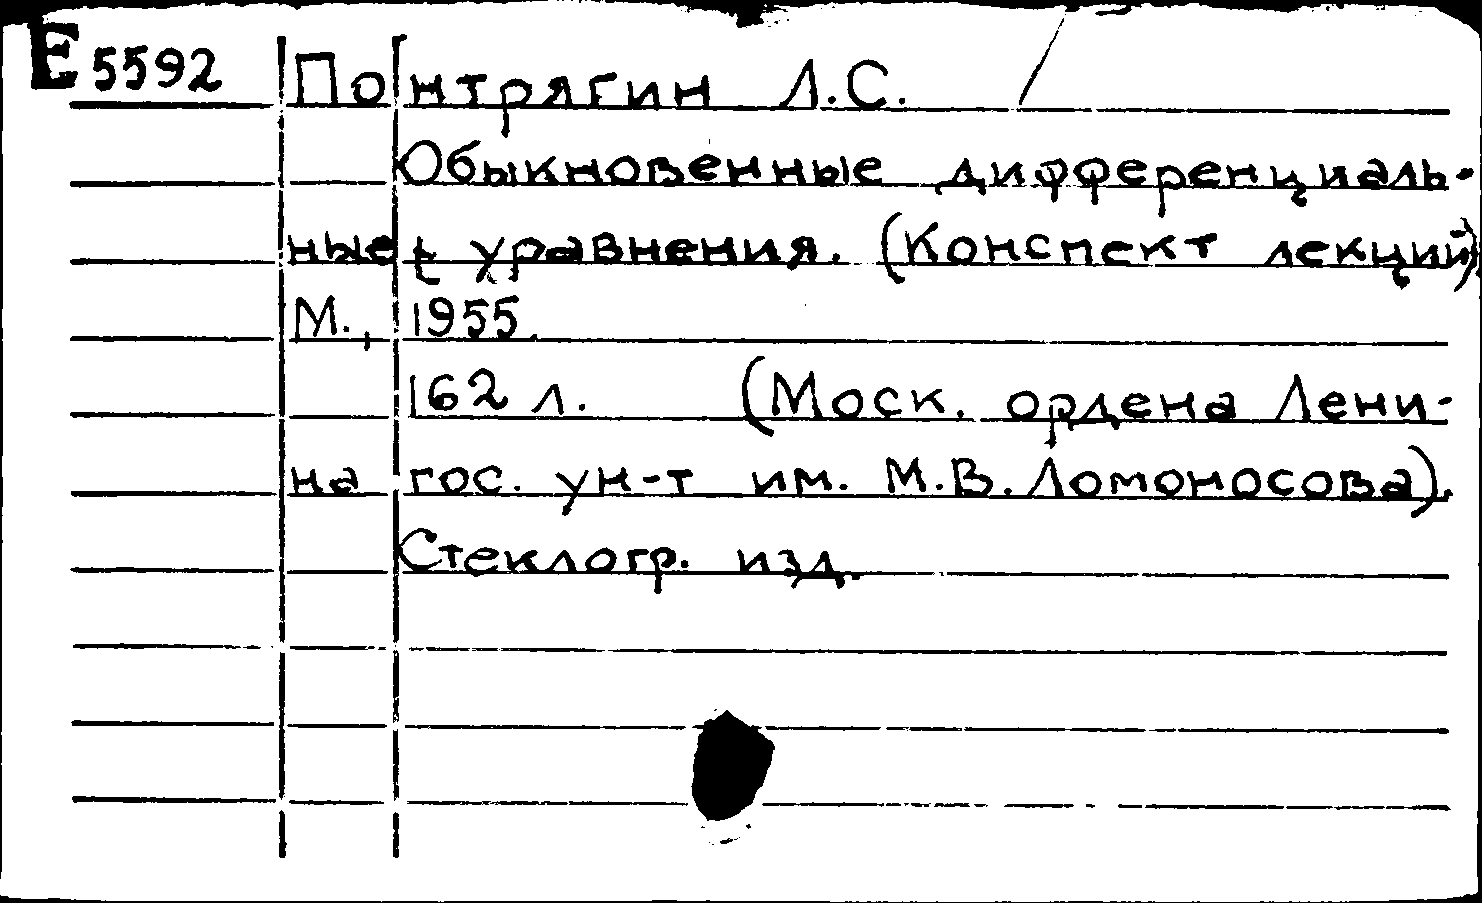 E 5592 Понтрягин Л.С.
Обыкновенные дифференциаль-
ные уравнения. (Конспект лекций)
М., 1955.
162 л. (Моск. ордена Лени-
на гос. ун-т им. М.В. Ломоносова).
Стеклогр. изд.